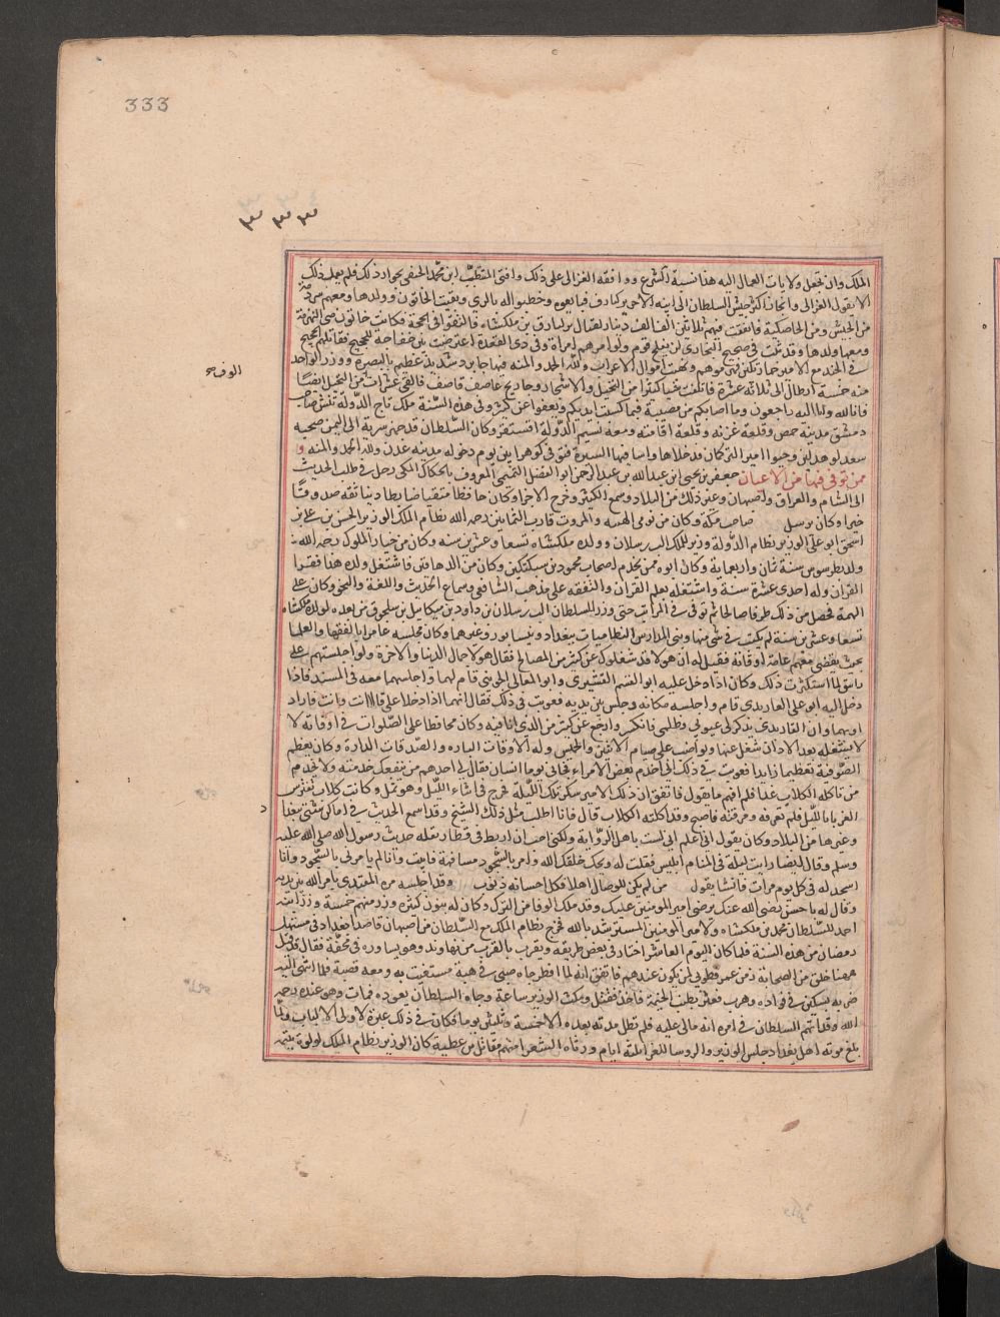 333
٣٣٣
الملك وان تجعل ولايات العمال اليه هذا نسبة الشرع ووافقه الغزالى على ذلك وافتى المتطبب ابن محمد الحنفى بجواز ذلك فلم يعمل ذلك
الا بقول الغزالى وانحاز اكثر جيش السلطان الى ابنه الاخر بركيارق فبايعوه وخطبوا له بالرى وبقيت الخاتون وولدها ومعهم شرذمة
من الجيش ومن الخاصكية فانفقت فيهم ثلاثين الف الف دينار لقتال بركيارق بن ملكشاه فالتقوا فى الحجة فكانت خاتون هى المنهزمة
ومعها ولدها وقد ثبت فى صحيح البخارى لن يفلح قوم ولوا امرهم امراة وفى ذى القعدة اعترضت بنى خفاجة للحجيج فقاتلهم الحجيج
فى الجند مع الامير خمارتكين فهزموهم ونهبت اموال الاعراب ولله الحمد والمنه فيها جا برد شديد عظيم بالبصرة وزن الواحد
منه خمسة ارطال الى ثلاثة عشرة فاتلفت شيا كثيرا من النخيل والاشجار وجا ريح عاصف قاصف فالقى عشرات من النخيل ايضا
الوف صح
فانا لله وانا اليه راجعون وما اصابكم من مصيبة فبما كسبت ايديكم ويعفوا عن كثير وفى هذه السنة ملك تاج الدولة تتش صاحب
دمشق مدينة حمص وقلعة عرنه وقلعة افامية ومعه قسيم الدولة اقسنقر وكان السلطان قد جهز سرية الى اليمن صحبه
سعد لوهدابن وجيوا امير التركمان فدخلاها واسا فيها السيرة فتوفى كوهرايين يوم دخوله مدينه عدن ولله الحمد والمنه و
ممن توفى فيها من الاعيان جعفر بن يحيى ابن عبد الله بن عبد الرحمن ابو الفضل التميمى المعروف بالحكاك المكى رحل فى طلب الحديث
الى الشام والعراق واصبهان وغير ذلك من البلاد وسمع الكثير وخرج الاجزا وكان حافظا متقيا ضابطا دينا ثقه صدوقا
خيرا وكان يرسل صاحب مكة وكان من ذوى الهيئه والمروت قارب الثمانين رحمه الله نظام الملك الوزير الحسن بن على بن
اسحق ابو على الوزير نظام الدولة وزير للملك الب رسلان وولده ملكشاه تسعا وعشرين سنه وكان من خيار الملوك رحمه الله
ولد بطوس سنة ثمان واربعماية وكان ابوه ممن يخدم اصحاب محمود بن سبكتكين وكان من الدهاقين فاشتغل ولده هذا فقرا
القران وله احدى عشرة سنة واشتغله بعلم القران والتفقه على مذهب الشافعى وسماع الحديث واللغة والنحو وكان على
الهمة فحصل من ذلك طرفا صالحا ثم ترقى فى المراتب حتى وزر للسلطان الب رسلان بن داود بن ميكايل بن سلجوق ثم من بعده لولده ملكشاه
تسعا وعشرين سنة لم ينكب فى شى منها وبنى المدارس النظاميات ببغداد ونيسابور وغيرهما وكان مجلسه عامرا بالفقها والعلما
بحيث يقضى معهم عامة اوقاته فقيل له ان هولا قد شغلوك عن كثير من المصالح فقال هولا جمال الدنيا والاخرة ولو اجلستهم على
راسى لما استكثرت ذلك وكان اذا دخل عليه ابو القسم القشيرى وابو المعالى الجوينى قام لهما واجلسهما معه فى المسند فاذا
دخل اليه ابو على الفارمدى قام واجلسه مكانه وجلس بين يديه فعوتب فى ذلك فقال انهما اذا دخلا على قالا انت وانت فازداد
بهما وان الفارمدى يذكر لى عيوبى وظلمى فانكسر وارجع عن كثير من الذى انا فيه وكان محافظا على الصلوات فى اوقاتها لا
لا يشغله بعد الاذان شغل عنها ويواضب على صيام الاثنين والخميس وله الاوقاف الباره والصدقات الداره وكان يعظم
الصوفية تعظيما زايدا فعوتب فى ذلك انى اخدم بعض الامراء فجانى يوما انسان فقال لى اخدم من ينفعك خدمته ولا تخدم
من تاكله الكلاب غدا فلم افهم ما يقول فاتفق ان ذلك الامير سكر تلك الليلة فخرج فى اثناء الليل وهو ثمل وكانت كلاب تفترس
الغربا بالليل فلم تعرفه ومزقته فاصبح وقد اكلته الكلاب قال فانا اطلب مثل ذلك الشيخ وقد اسمع الحديث فى اماكن شتى ببغداد
وغيرها من البلاد وكان يقول انى اعلم انى لست باهل الروايه ولكنى احب ان اربط فى قطار نقله حديث رسول الله صلى الله عليه
وسلم وقال ايضا رايت ليلة فى المنام ابليس فقلت له ويحك خلقك الله وامرك بالسجود مسافهة فابيت وانا لم يامرنى بالسجود وانا
اسجد له فى كل يوم مرات فانشا يقول من لم يكن للوصال اهلا فكل احسانه ذنوب وقد اجلسه مره المقتدى بامر الله بين يديه
وقال له يا حسن رضى الله عنك برضى امير المومنين عليك وقد ملك الوفا من الترك وكان له بنون كثيرة وزر منهم خمسة وزر ابنه
احمد للسلطان محمد بن ملكشاه ولامير المومنين المسترشد بالله فخرج نظام الملك مع السلطان من اصبهان قاصدا بغداد فى مستهل
رمضان من هذه السنة فلما كان اليوم العاشر اجتاز فى بعض طريقه وبقرب بالقرب من نهاوند وهو يسايره فى محفة فقال قد قتل
ههنا خلق من الصحابة زمن عمر فطوبى لمن يكون عندهم فاتفق انه لما افطر جاه صبى فى هيئة مستغيث به ومعه قصة فلما انتهى اليه
ضربه بسكين فى فواده وهرب فعثر بطنب الخيمة فاخذ فقتل ومكث الوزير ساعة وجاه السلطان يعوده فمات وهو عنده رحمه
الله وقد اتهم السلطان فى امره انه مالى عليه فلم تطل مدته بعده الا خمسة وثلثين يوما فكان فى ذلك عبرة لاولى الالباب ولما
بلغ موته اهل بغداد جلس الوزير والروسا للعزا ثلثة ايام ورثاه الشعرا منهم مقاتل بن عطية كان الوزير نظام الملك لولوة يتيمه